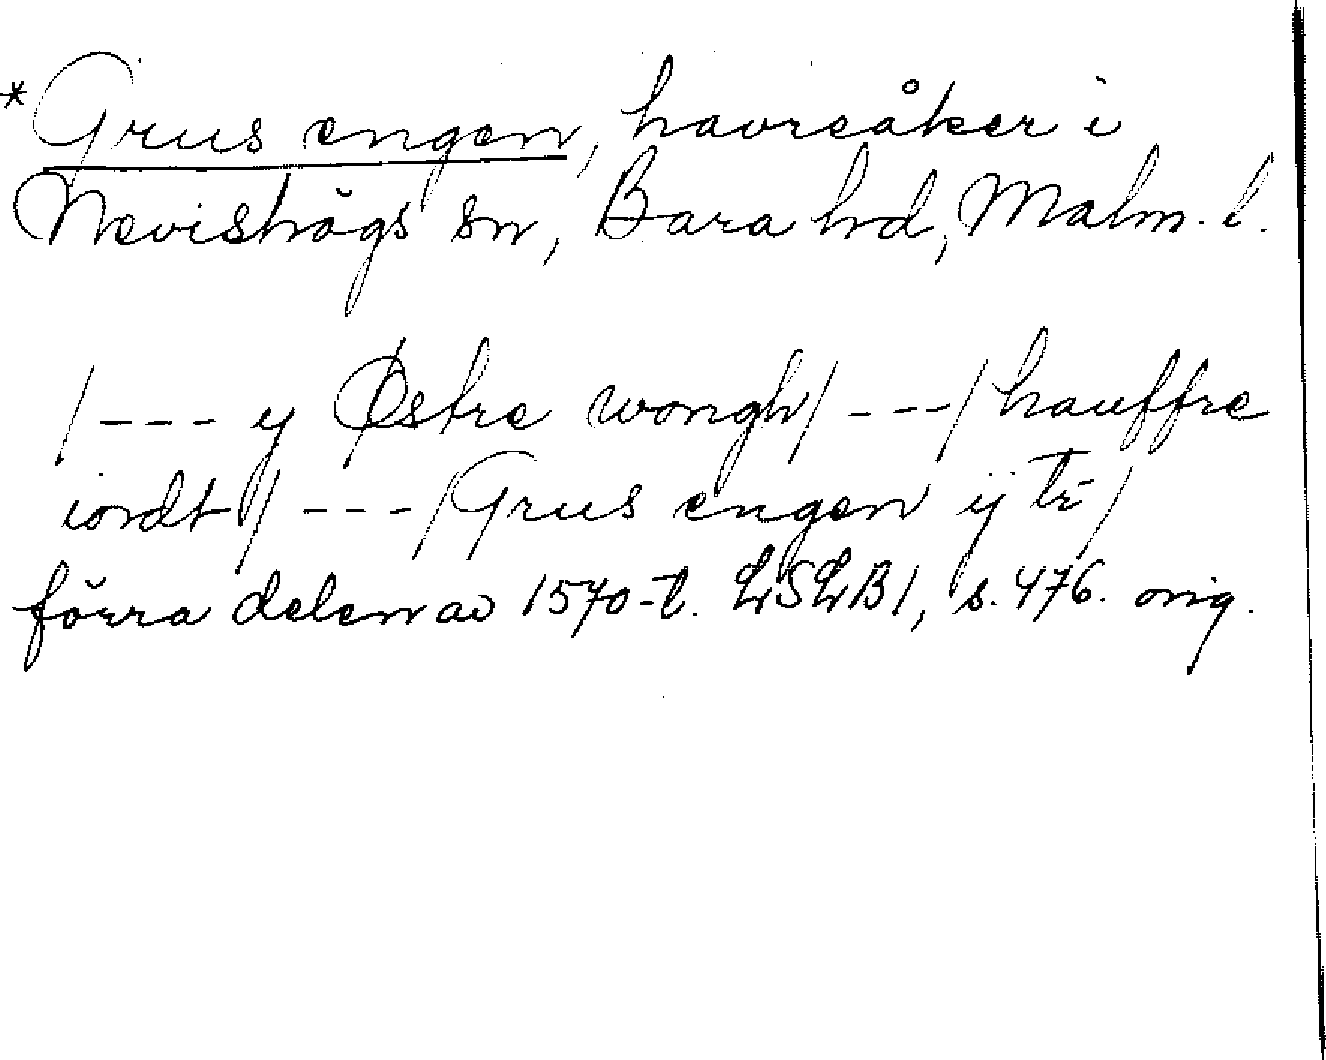 *Grus engen, havreåker i
Nevishögs sn, Bara hd, Malm. l.
/--- y Østre wongh/ ---/ hauffre
iordt/ ---/ Grus engen ij tr /
förra delen av 1570-t. LSLB1, s. 476. orig.